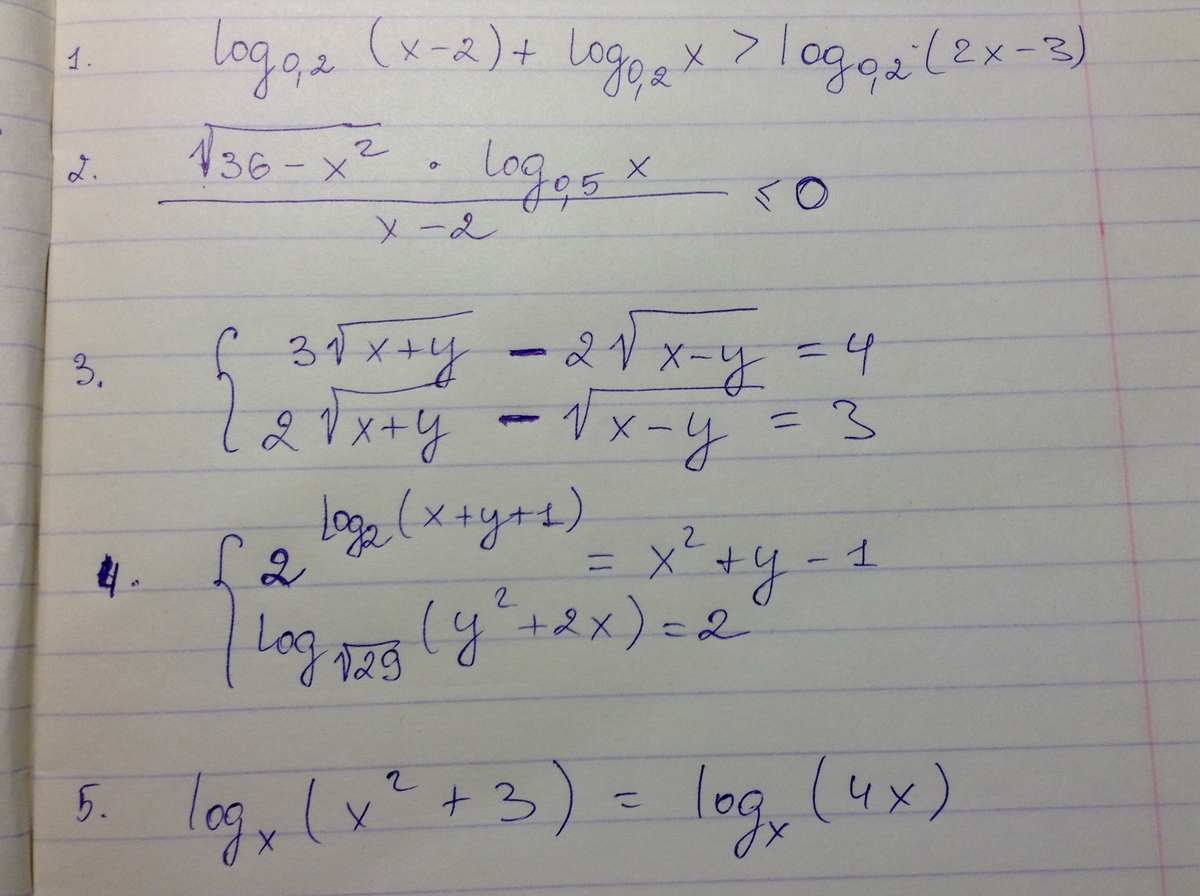 1. log₀,₂ (x−2) + log₀,₂ x > log₀,₂ (2x−3)
2. (√(36−x²) · log₀,₅ x) / (x−2) ≤ 0
3. { 3√(x+y) − 2√(x−y) = 4
2√(x+y) − √(x−y) = 3
4. { 2^(log₂(x+y+1)) = x²+y−1
log_√29 (y²+2x) = 2
5. logₓ (x²+3) = logₓ (4x)